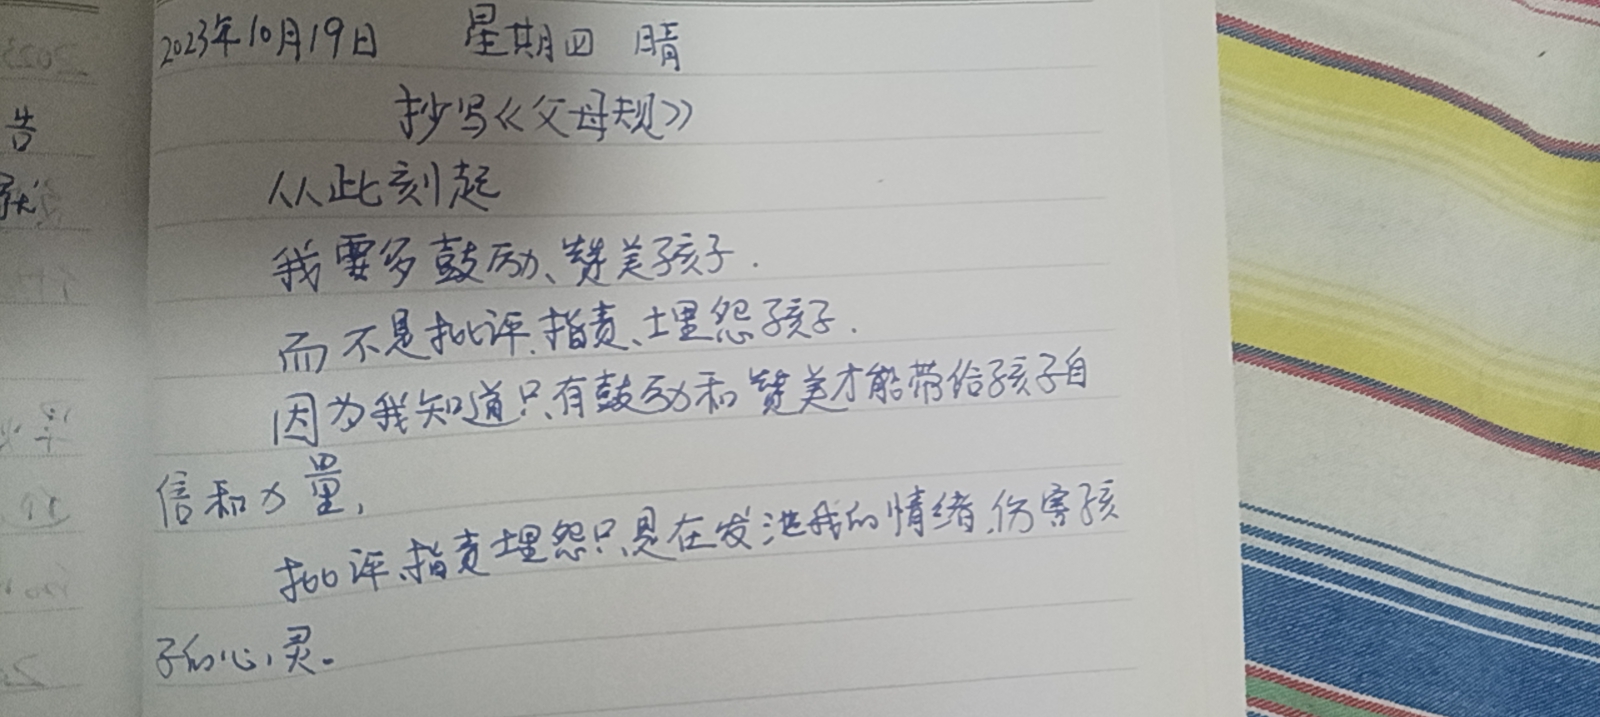 2023年10月19日 星期四 晴
抄写《父母规》
从此刻起
我要多鼓励、赞美孩子.
而不是批评、指责、埋怨孩子.
因为我知道只有鼓励和赞美才能带给孩子自
信和力量,
批评、指责埋怨只是在发泄我的情绪、伤害孩
子的心灵。
告